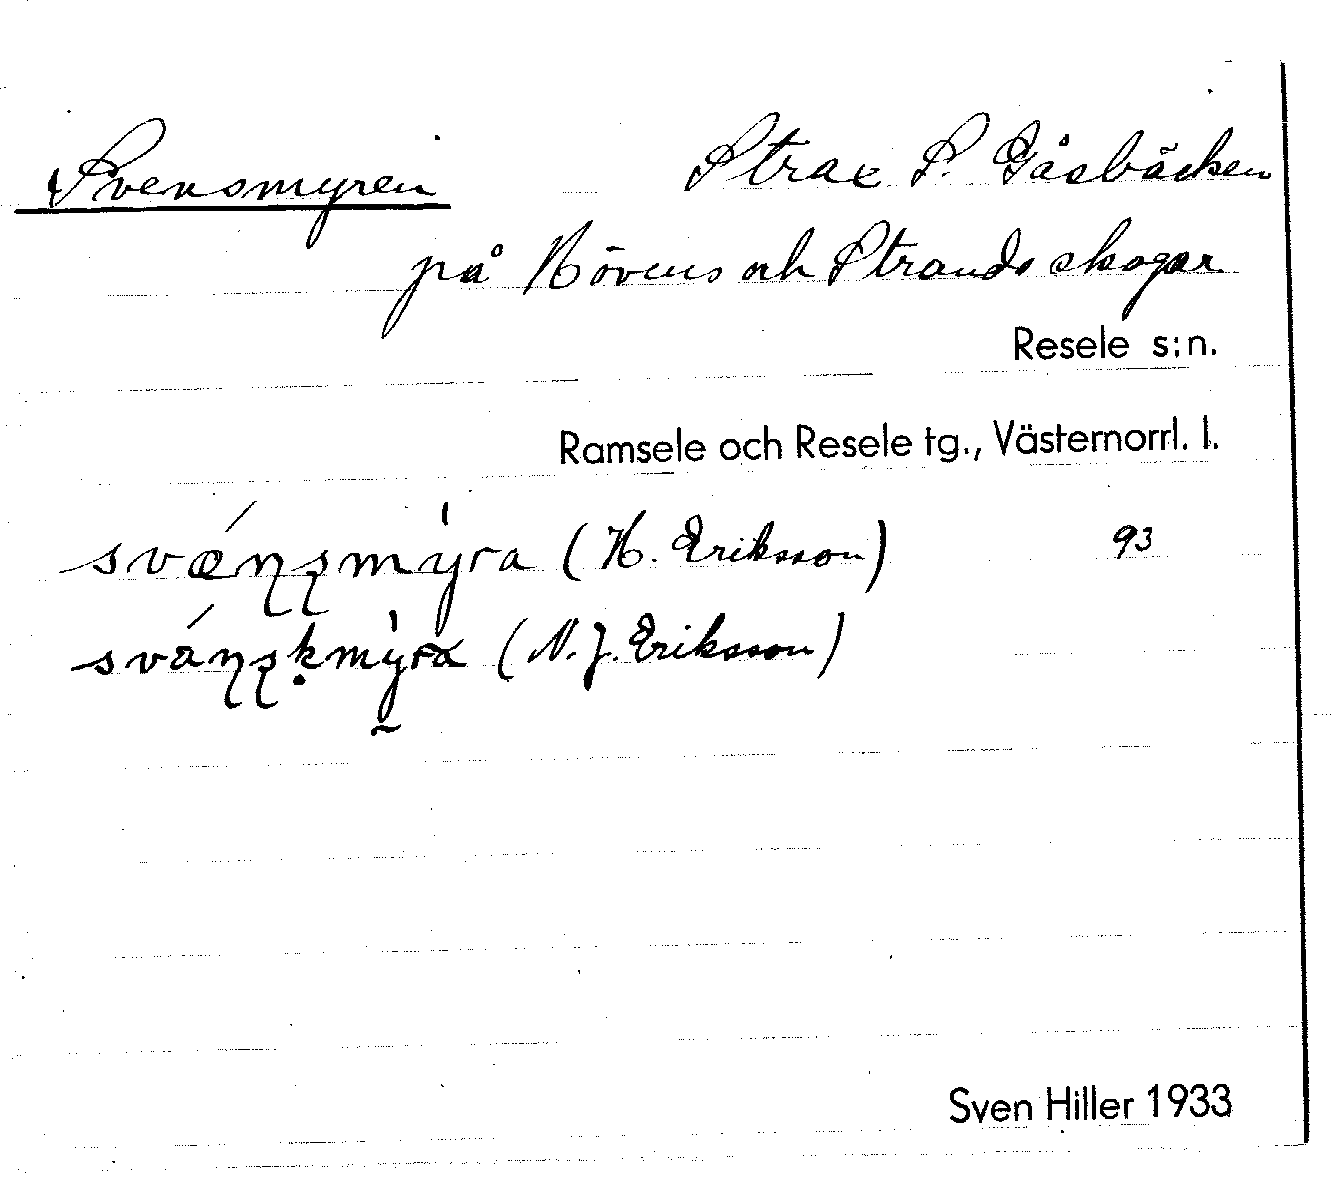 Svensmyren Strax S. Gåsbäcken
på Növens och Strands skogar
Resele s:n.
Ramsele och Resele tg., Västernorrl. l.
svæ̀ṇṣmỳra (H. Eriksson) 93
svàṇṣḳmỳra (N. J. Eriksson)
Sven Hiller 1933